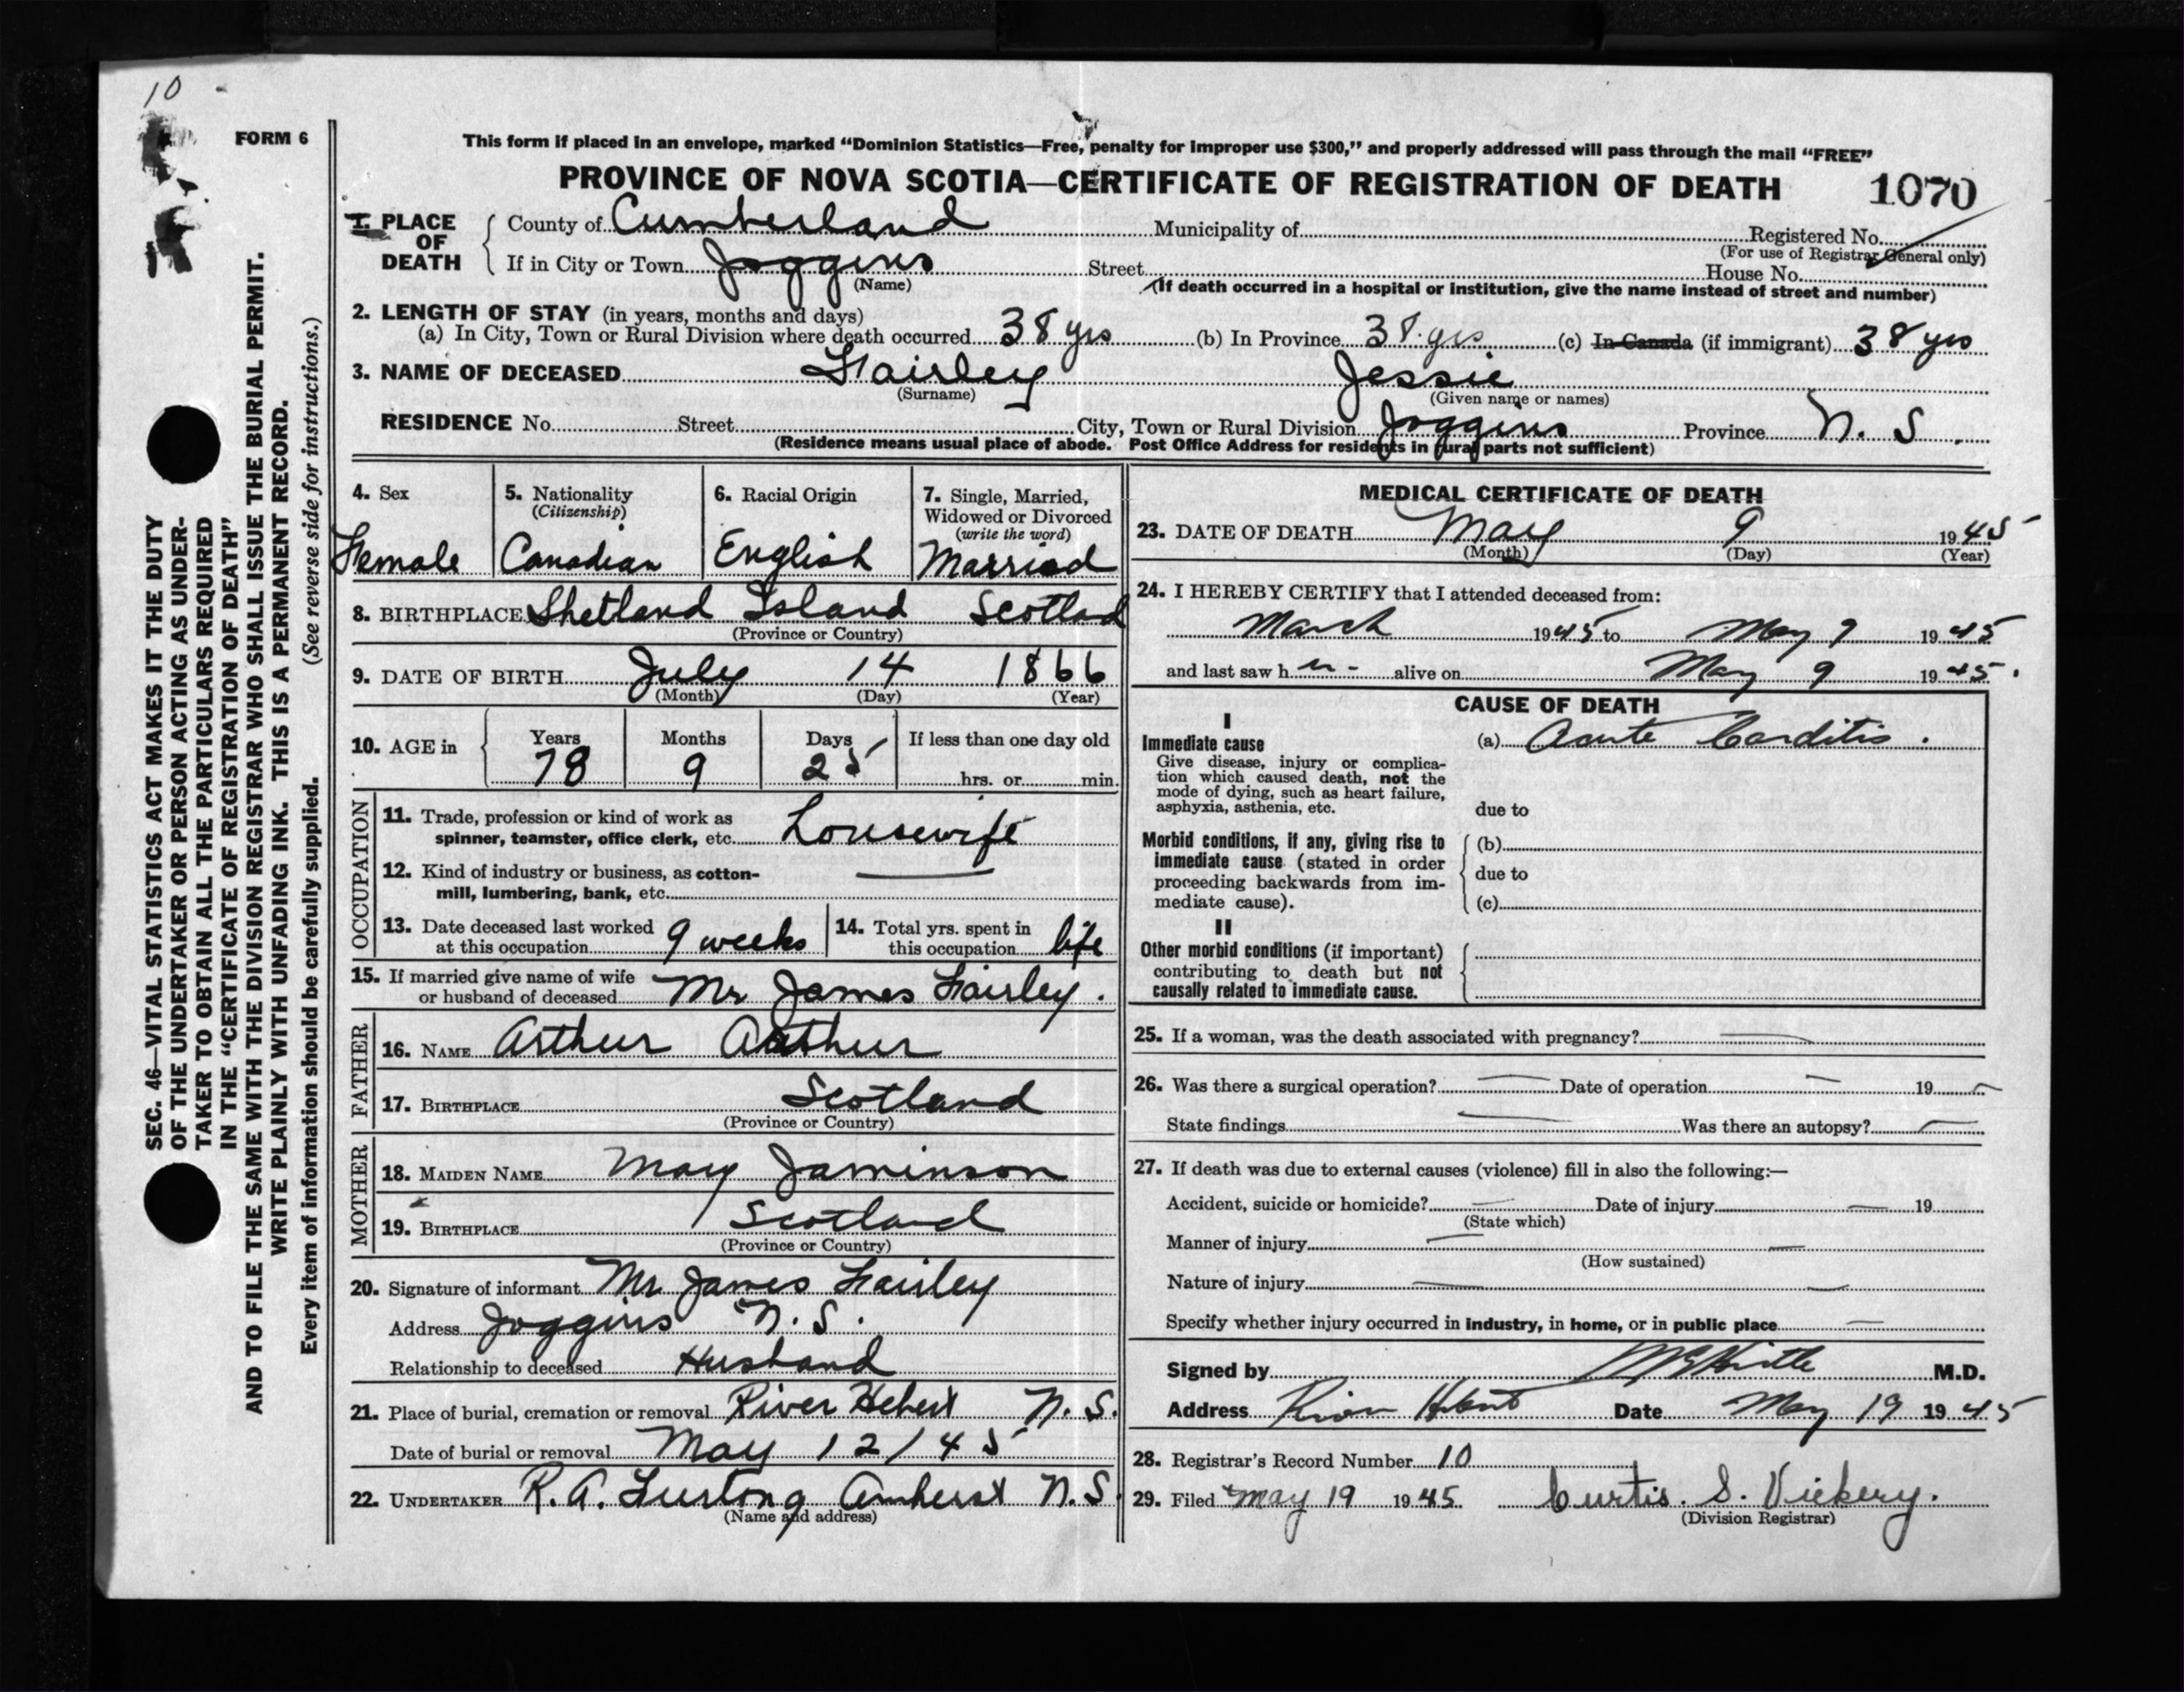 10
FORM 6
This form if placed in an envelope, marked "Dominion Statistics—Free, penalty for improper use $300," and properly addressed will pass through the mail "FREE"
PROVINCE OF NOVA SCOTIA—CERTIFICATE OF REGISTRATION OF DEATH 1070
1. PLACE OF DEATH County of Cumberland Municipality of Registered No.
(For use of Registrar General only)
If in City or Town Joggins Street House No.
(Name) (If death occurred in a hospital or institution, give the name instead of street and number)
2. LENGTH OF STAY (in years, months and days)
(a) In City, Town or Rural Division where death occurred 38 yrs (b) In Province 38 yrs (c) In Canada (if immigrant) 38 yrs
3. NAME OF DECEASED Fairley Jessie
(Surname) (Given name or names)
RESIDENCE No. Street City, Town or Rural Division Joggins Province N. S.
(Residence means usual place of abode. Post Office Address for residents in rural parts not sufficient)
4. Sex Female
5. Nationality (Citizenship) Canadian
6. Racial Origin English
7. Single, Married, Widowed or Divorced (write the word) Married
8. BIRTHPLACE Shetland Island Scotlad
(Province or Country)
9. DATE OF BIRTH July 14 1866
(Month) (Day) (Year)
10. AGE in Years Months Days If less than one day old
78 9 25 hrs. or min.
OCCUPATION
11. Trade, profession or kind of work as
spinner, teamster, office clerk, etc. Housewife
12. Kind of industry or business, as cotton-
mill, lumbering, bank, etc.
13. Date deceased last worked at this occupation 9 weeks
14. Total yrs. spent in this occupation life
15. If married give name of wife
or husband of deceased Mr James Fairley.
FATHER
16. NAME Arthur Arthur
17. BIRTHPLACE Scotland
(Province or Country)
MOTHER
18. MAIDEN NAME Mary Jaminson
19. BIRTHPLACE Scotland
(Province or Country)
20. Signature of informant Mr James Fairley
Address Joggins N. S.
Relationship to deceased Husband
21. Place of burial, cremation or removal River Hebert N. S.
Date of burial or removal May 12/45
22. UNDERTAKER R. A. Amherst N. S.
(Name and address)
MEDICAL CERTIFICATE OF DEATH
23. DATE OF DEATH May 9 1945
(Month) (Day) (Year)
24. I HEREBY CERTIFY that I attended deceased from:
March 1945 to May 9 1945
and last saw h er alive on May 9 1945.
CAUSE OF DEATH
I
Immediate cause (a) Acute Carditis.
Give disease, injury or complica-
tion which caused death, not the
mode of dying, such as heart failure,
asphyxia, asthenia, etc. due to
Morbid conditions, if any, giving rise to (b)
immediate cause (stated in order
proceeding backwards from im- due to
mediate cause). (c)
II
Other morbid conditions (if important)
contributing to death but not
causally related to immediate cause.
25. If a woman, was the death associated with pregnancy?
26. Was there a surgical operation? Date of operation 19
State findings Was there an autopsy?
27. If death was due to external causes (violence) fill in also the following:—
Accident, suicide or homicide? Date of injury 19
(State which)
Manner of injury
(How sustained)
Nature of injury
Specify whether injury occurred in industry, in home, or in public place
Signed by M.D.
Address River Hebert Date May 19 1945
28. Registrar's Record Number 10
29. Filed May 19 1945 Curtis. S. Vickery.
(Division Registrar)
SEC. 46—VITAL STATISTICS ACT MAKES IT THE DUTY
OF THE UNDERTAKER OR PERSON ACTING AS UNDER-
TAKER TO OBTAIN ALL THE PARTICULARS REQUIRED
IN THE "CERTIFICATE OF REGISTRATION OF DEATH"
AND TO FILE THE SAME WITH THE DIVISION REGISTRAR WHO SHALL ISSUE THE BURIAL PERMIT.
WRITE PLAINLY WITH UNFADING INK. THIS IS A PERMANENT RECORD.
Every item of information should be carefully supplied. (See reverse side for instructions.)